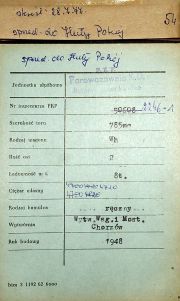 skreśl. 28.7.77
sprzed. do Huty Pokój
54
sprzed. do Huty Pokój
P.K.P.
Jednostka służbowa Parowozownia
Nr inwentarza PKP 50598 2246-1
Szerokość toru 785mm
Rodzaj wagonu Wh
Ilość osi 2
Ładowność w t. 8t.
Ciężar własny
Rodzaj hamulca ręczny
Wytwórnia Wytw. Wag. i Most. Chorzów
Rok budowy 1948